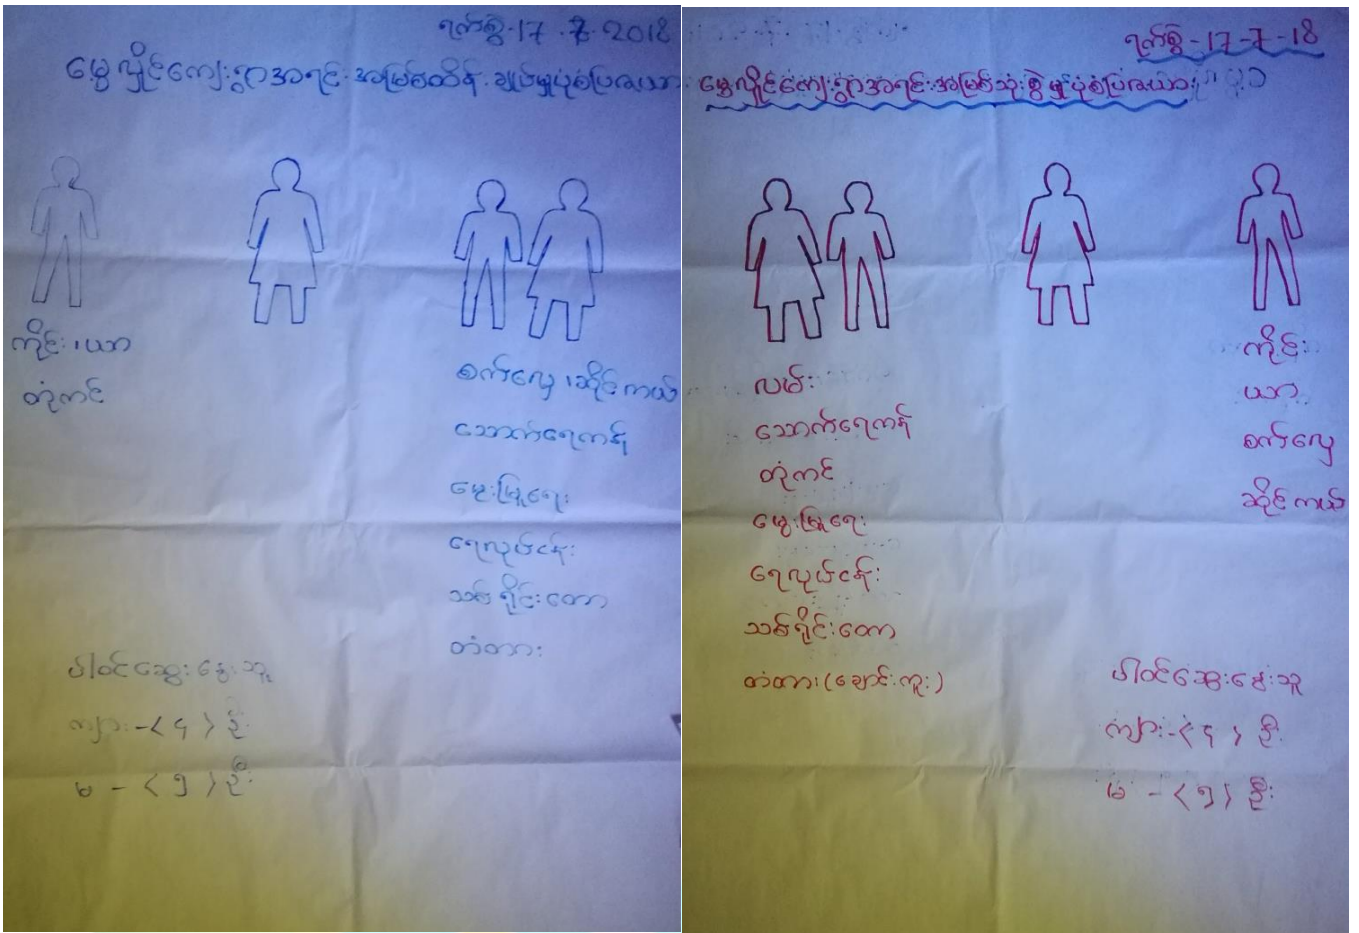 ရက်စွဲ-17.7.2018
မွေလှိုင်ကျေးရွာအရင်းအမြစ်ထိန်းချုပ်မှုပုံစံပြဇယား
ကိုင်း၊ ယာ
တုံကင်
စက်လှေ၊ ဆိုင်ကယ်
သောက်ရေကန်
မွေးမြူရေး
ရေလုပ်ငန်း
သစ်ရိုင်းတော
တံတား
ပါဝင်ဆွေးနွေးသူ
ကျား-<၄>ဦး
မ-<၅>ဦး
ရက်စွဲ-17-7-18
မွေလှိုင်ကျေးရွာအရင်းအမြစ်သုံးစွဲမှုပုံစံပြဇယား
လမ်း
သောက်ရေကန်
တုံကင်
မွေးမြူရေး
ရေလုပ်ငန်း
သစ်ရိုင်းတော
တံတား(ချောင်းကူး)
ကိုင်း
ယာ
စက်လှေ
ဆိုင်ကယ်
ပါဝင်ဆွေးနွေးသူ
ကျား-<၄>ဦး
မ-<၅>ဦး